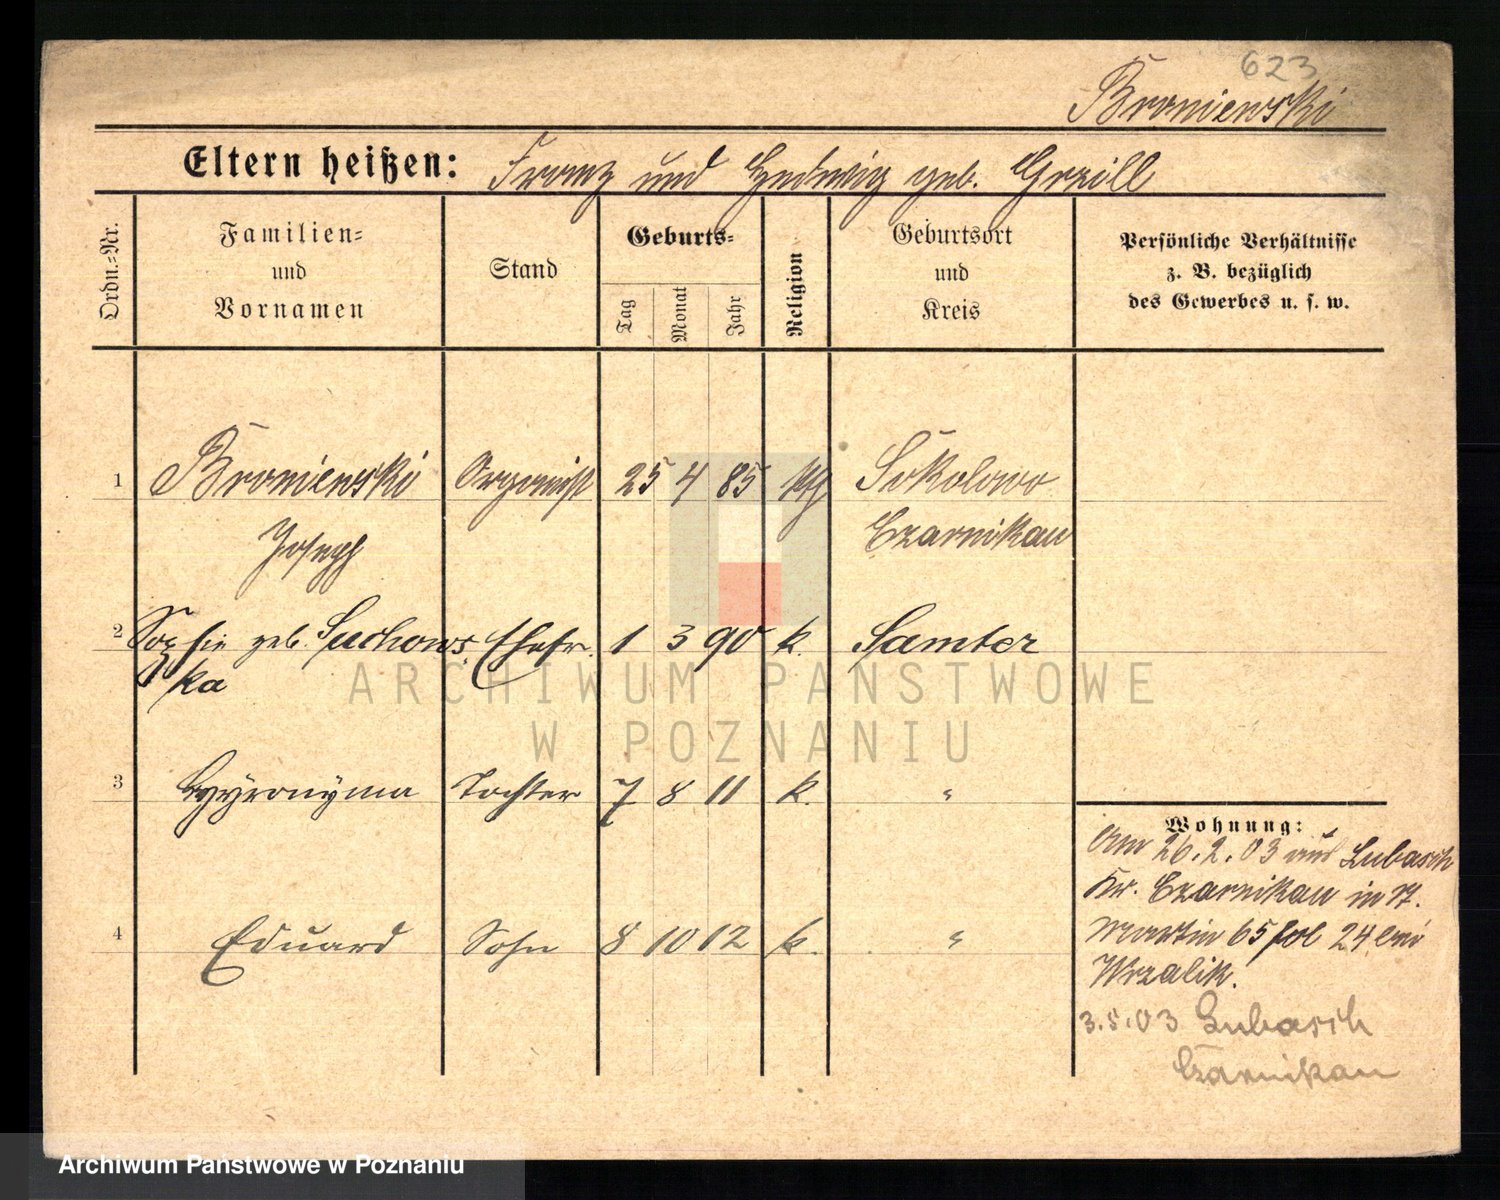 623
Broniewski
Eltern heißen: Franz und Hedwig geb. Grzill
Ordn.=Nr.
Familien=
und
Vornamen
Stand
Geburts=
Tag
Monat
Jahr
Religion
Geburtsort
und
Kreis
Persönliche Verhältnisse
z. B. bezüglich
des Gewerbes u. s. w.
1 Broniewski Organist 25 4 85 kth Sokolowo
Joseph Czarnikau
2 Sophie geb. Suchows Ehefr. 1 3 90 k. Samter
ka
3 Hyyronyma Tochter 7 8 11 k. "
4 Eduard Sohn 8 10 12 k. "
Wohnung:
Am 26.2.03 aus Lubasch
Kr. Czarnikau in St.
Martin 65 fol 24 bei
Wrzalik.
3.5.03 Lubasch
Czarnikau
ARCHIWUM PAŃSTWOWE
W POZNANIU
Archiwum Państwowe w Poznaniu